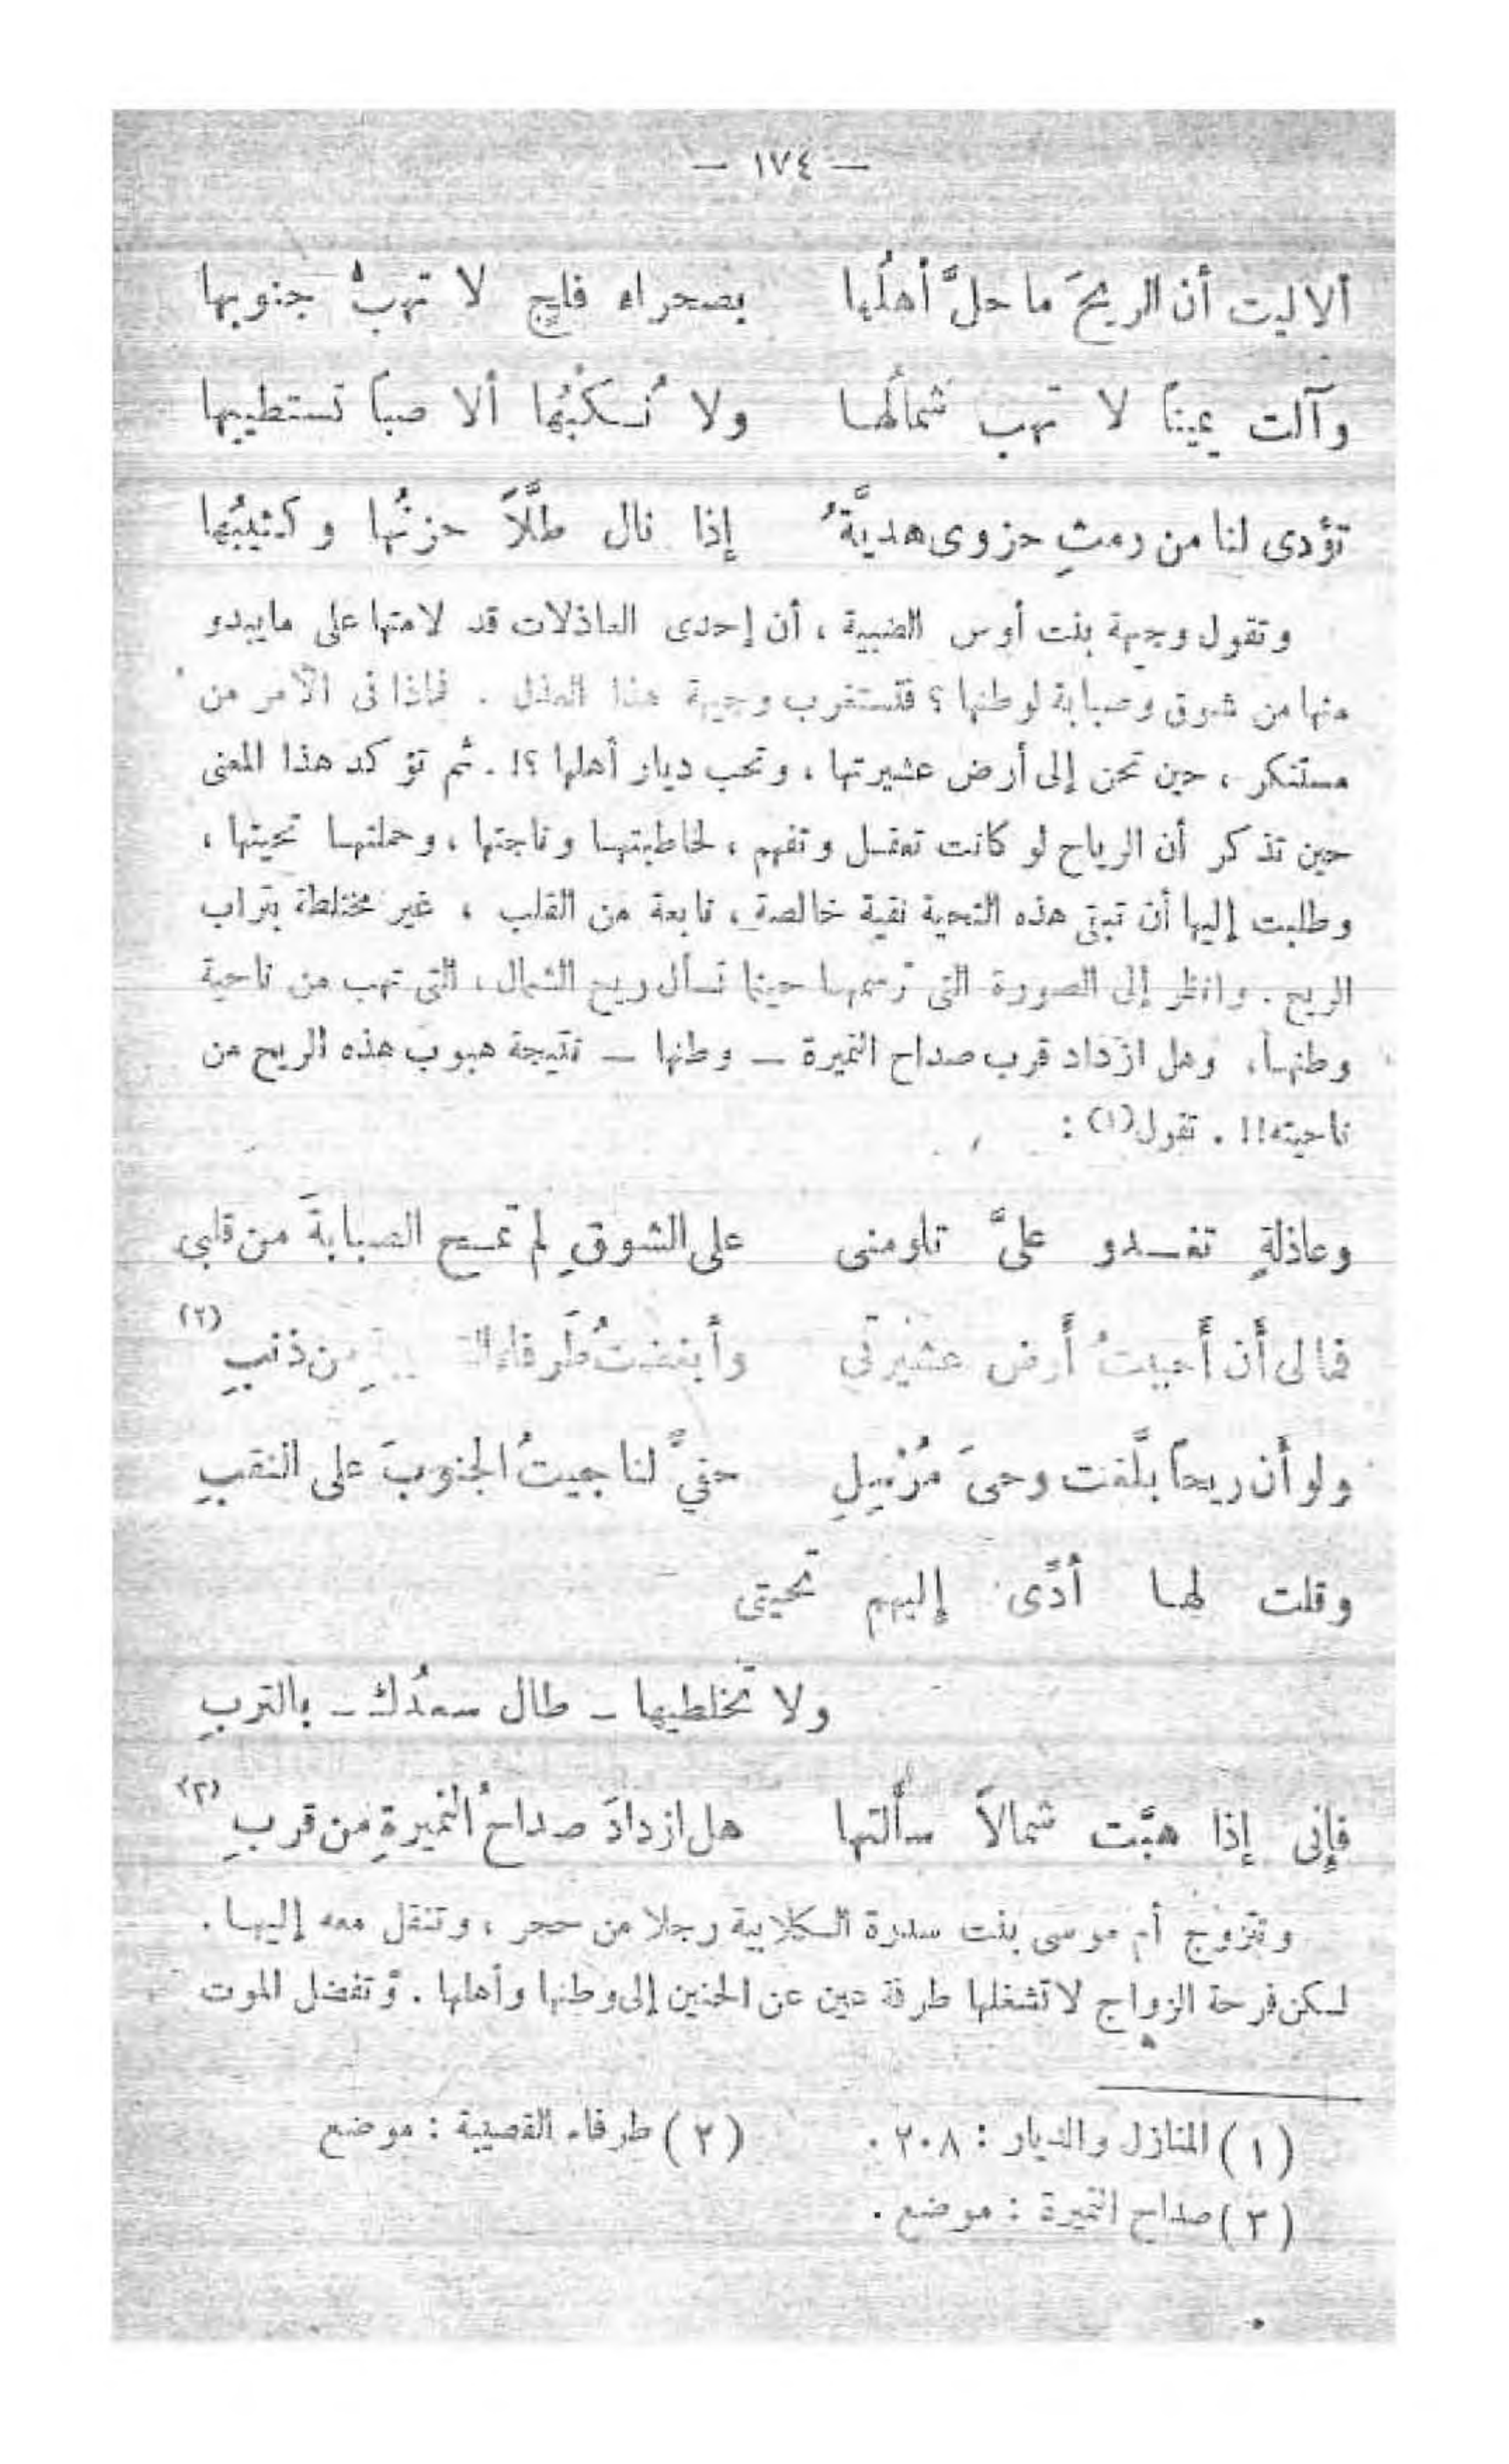 — ١٧٤ —
ألا ليت أن الريحَ ما حلَّ أهلُها    بصحراء فلجٍ لا تهبُّ جنوبها
وآلت يميناً لا تهب شمالُها    ولا نُكْبُها ألا صباً تستطيبها
تؤدى لنا من رمثِ حزوى هديَّةً    إذا نال طلَّاً حزنُها وكثيبُها
وتقول وجيهة بنت أوس الضبية ، أن إحدى العاذلات قد لامتها على مايبدو
منها من شوق وصبابة لوطنها ؟ فتستغرب وجيهة هذا العذل . فماذا فى الأمر من
مستنكر ، حين تحن إلى أرض عشيرتها ، وتحب ديار أهلها ؟! . ثم تؤكد هذا المعنى
حين تذكر أن الرياح لو كانت تعقل وتفهم ، لخاطبتها وناجتها ، وحملتها تحيتها ،
وطلبت إليها أن تبقى هذه التحية نقية خالصة ، نابعة من القلب ، غير مختلطة بتراب
الريح . وانظر إلى الصورة التى ترسمها حينما تسأل ريح الشمال ، التى تهب من ناحية
وطنها ، وهل ازداد قرب صداح النميرة — وطنها — نتيجة هبوب هذه الريح من
ناحيته !! . تقول (١) :
وعاذلةٍ تغدو علىَّ تلومنى    على الشوقِ لم تمح الصبابةَ من قلبى
فمالى أن أحببتُ أرض عشيرتى    وأبغضتُ طَرفاء من ذنبِ (٢)
ولو أن ريحاً بلَّغت وحىَ مُرْسِلٍ    حفىٍّ لناجيتُ الجنوبَ على النقبِ
وقلت لها أدِّى إليهم تحيتى
ولا تخلطيها — طال سعدُك — بالتربِ
فإنى إذا هبَّت شمالاً سألتها    هل ازدادَ صداحُ النميرةِ من قربِ (٣)
وتتزوج أم موسى بنت سدرة الكلابية رجلا من حجر ، وتنقل معه إليها .
لكن فرحة الزواج لا تشغلها طرفة عين عن الحنين إلى وطنها وأهلها . وتفضل الموت
(١) المنازل والديار : ٢٠٨ .    (٢) طرفاء القصيبة : موضع
(٣) صداح النميرة : موضع .